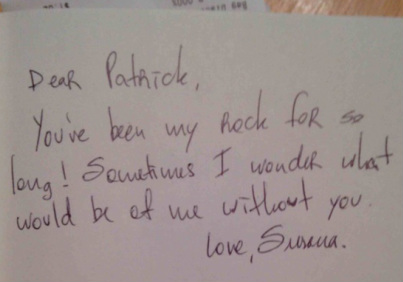 Dear Patrick,
You've been my rock for so
long! Sometimes I wonder what
would be of me without you.
Love, Susana.